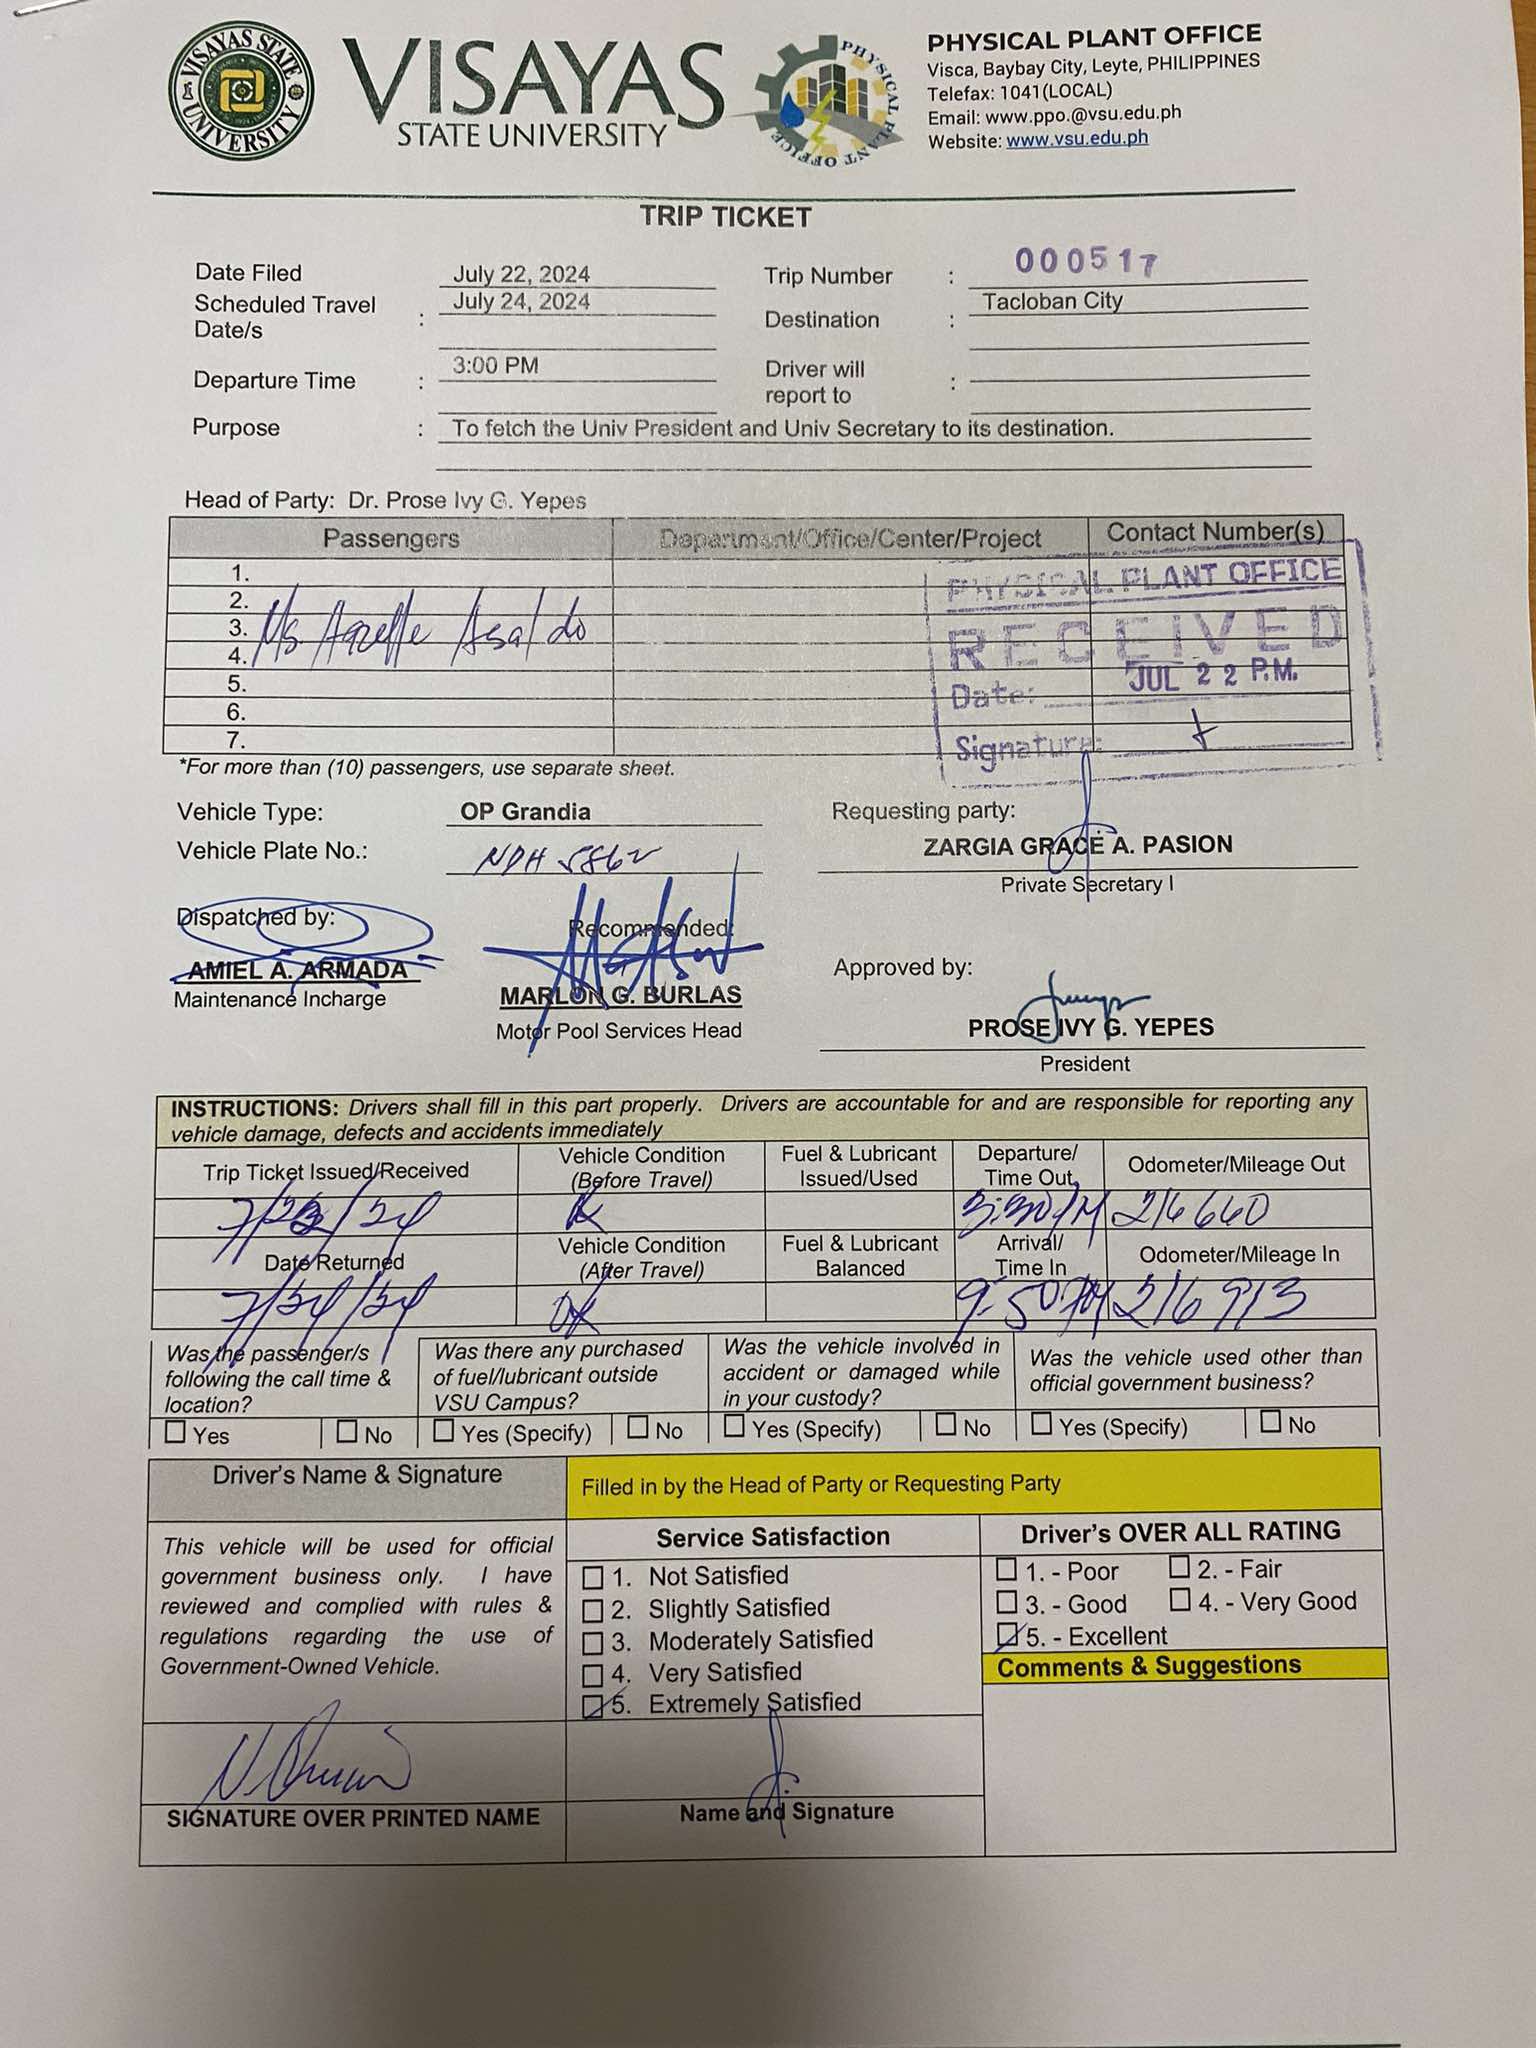 VISAYAS STATE UNIVERSITY
VISAYAS
STATE UNIVERSITY
PHYSICAL PLANT OFFICE
PHYSICAL PLANT OFFICE
Visca, Baybay City, Leyte, PHILIPPINES
Telefax: 1041(LOCAL)
Email: www.ppo.@vsu.edu.ph
Website: www.vsu.edu.ph
TRIP TICKET
Date Filed July 22, 2024 Trip Number : 000517
Scheduled Travel Date/s : July 24, 2024 Destination : Tacloban City
Departure Time : 3:00 PM Driver will report to :
Purpose : To fetch the Univ President and Univ Secretary to its destination.
Head of Party: Dr. Prose Ivy G. Yepes
Passengers Department/Office/Center/Project Contact Number(s)
1.
2.
3. Ms. Asaldo
4.
5.
6.
7.
PHYSICAL PLANT OFFICE
RECEIVED
Date: JUL 22 P.M.
Signature:
*For more than (10) passengers, use separate sheet.
Vehicle Type: OP Grandia Requesting party:
Vehicle Plate No.: ZARGIA GRACE A. PASION
Private Secretary I
Dispatched by: Recommended: Approved by:
AMIEL A. ARMADA MARLON G. BURLAS PROSE IVY G. YEPES
Maintenance Incharge Motor Pool Services Head President
INSTRUCTIONS: Drivers shall fill in this part properly. Drivers are accountable for and are responsible for reporting any
vehicle damage, defects and accidents immediately
Trip Ticket Issued/Received Vehicle Condition (Before Travel) Fuel & Lubricant Issued/Used Departure/ Time Out Odometer/Mileage Out
216660
Date Returned Vehicle Condition (After Travel) Fuel & Lubricant Balanced Arrival/ Time In Odometer/Mileage In
7/24/24 OK 9:50PM 216913
Was the passenger/s following the call time & location?
Yes No
Was there any purchased of fuel/lubricant outside VSU Campus?
Yes (Specify) No
Was the vehicle involved in accident or damaged while in your custody?
Yes (Specify) No
Was the vehicle used other than official government business?
Yes (Specify) No
Driver's Name & Signature
This vehicle will be used for official
government business only. I have
reviewed and complied with rules &
regulations regarding the use of
Government-Owned Vehicle.
SIGNATURE OVER PRINTED NAME
Filled in by the Head of Party or Requesting Party
Service Satisfaction
1. Not Satisfied
2. Slightly Satisfied
3. Moderately Satisfied
4. Very Satisfied
5. Extremely Satisfied
Name and Signature
Driver's OVER ALL RATING
1. - Poor 2. - Fair
3. - Good 4. - Very Good
5. - Excellent
Comments & Suggestions